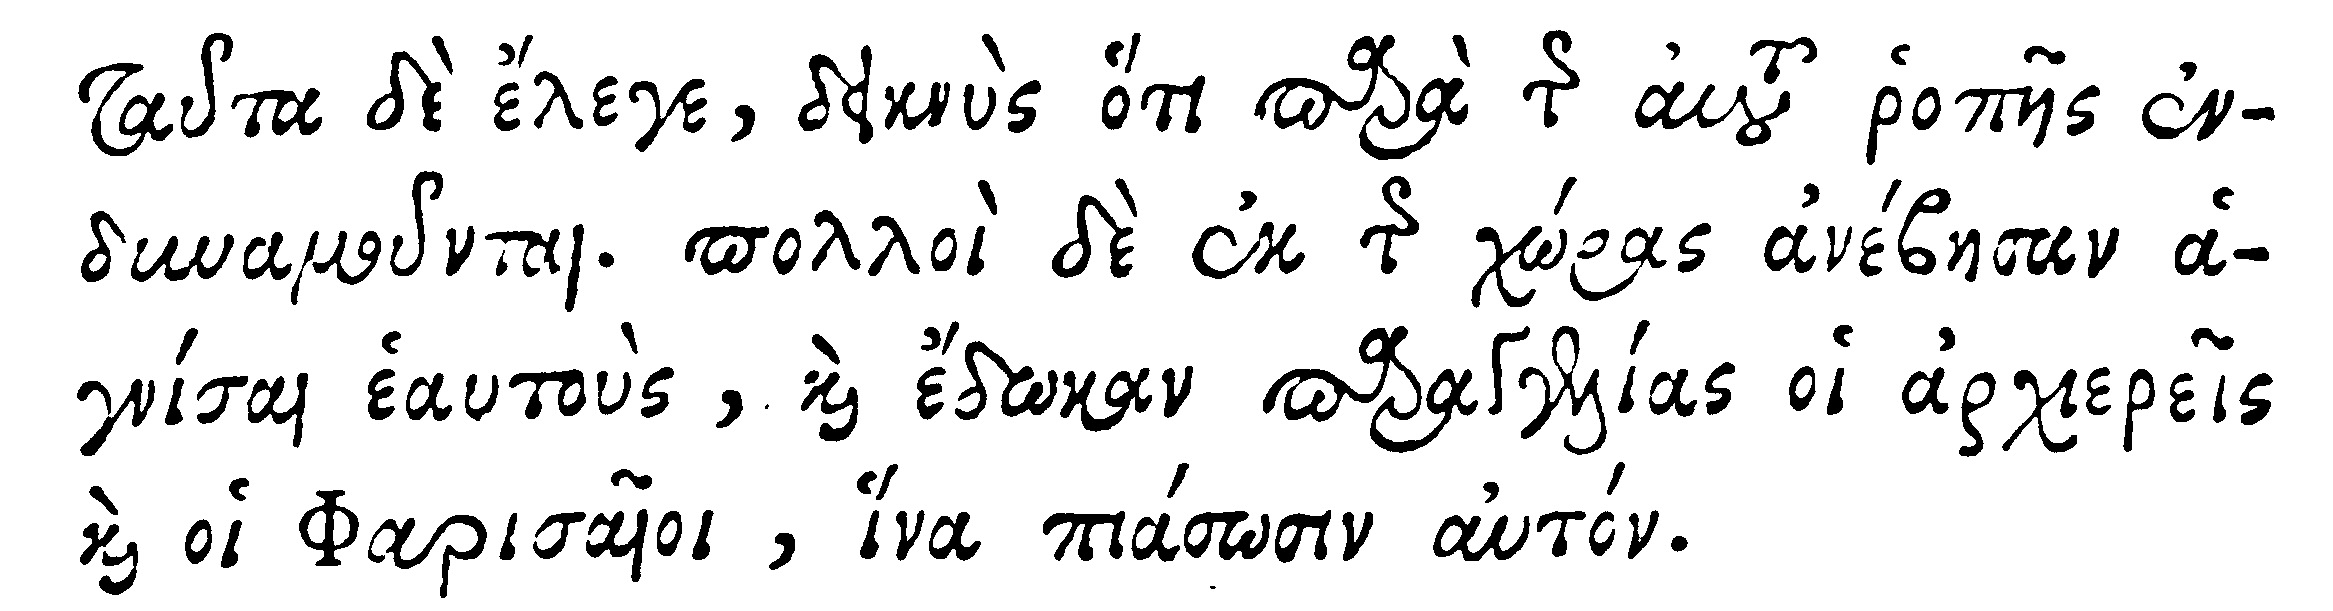 Ταῦτα δὲ ἔλεγε, δεικνὺς ὅτι παρὰ τῆς αὐτοῦ ῥοπῆς ἐν-
δυναμοῦνται. πολλοὶ δὲ ἐκ τῆς χώρας ἀνέβησαν ἁ-
γνίσαι ἑαυτοὺς, καὶ ἔδωκαν παραγγελίας οἱ ἀρχιερεῖς
καὶ οἱ Φαρισαῖοι, ἵνα πιάσωσιν αὐτόν.